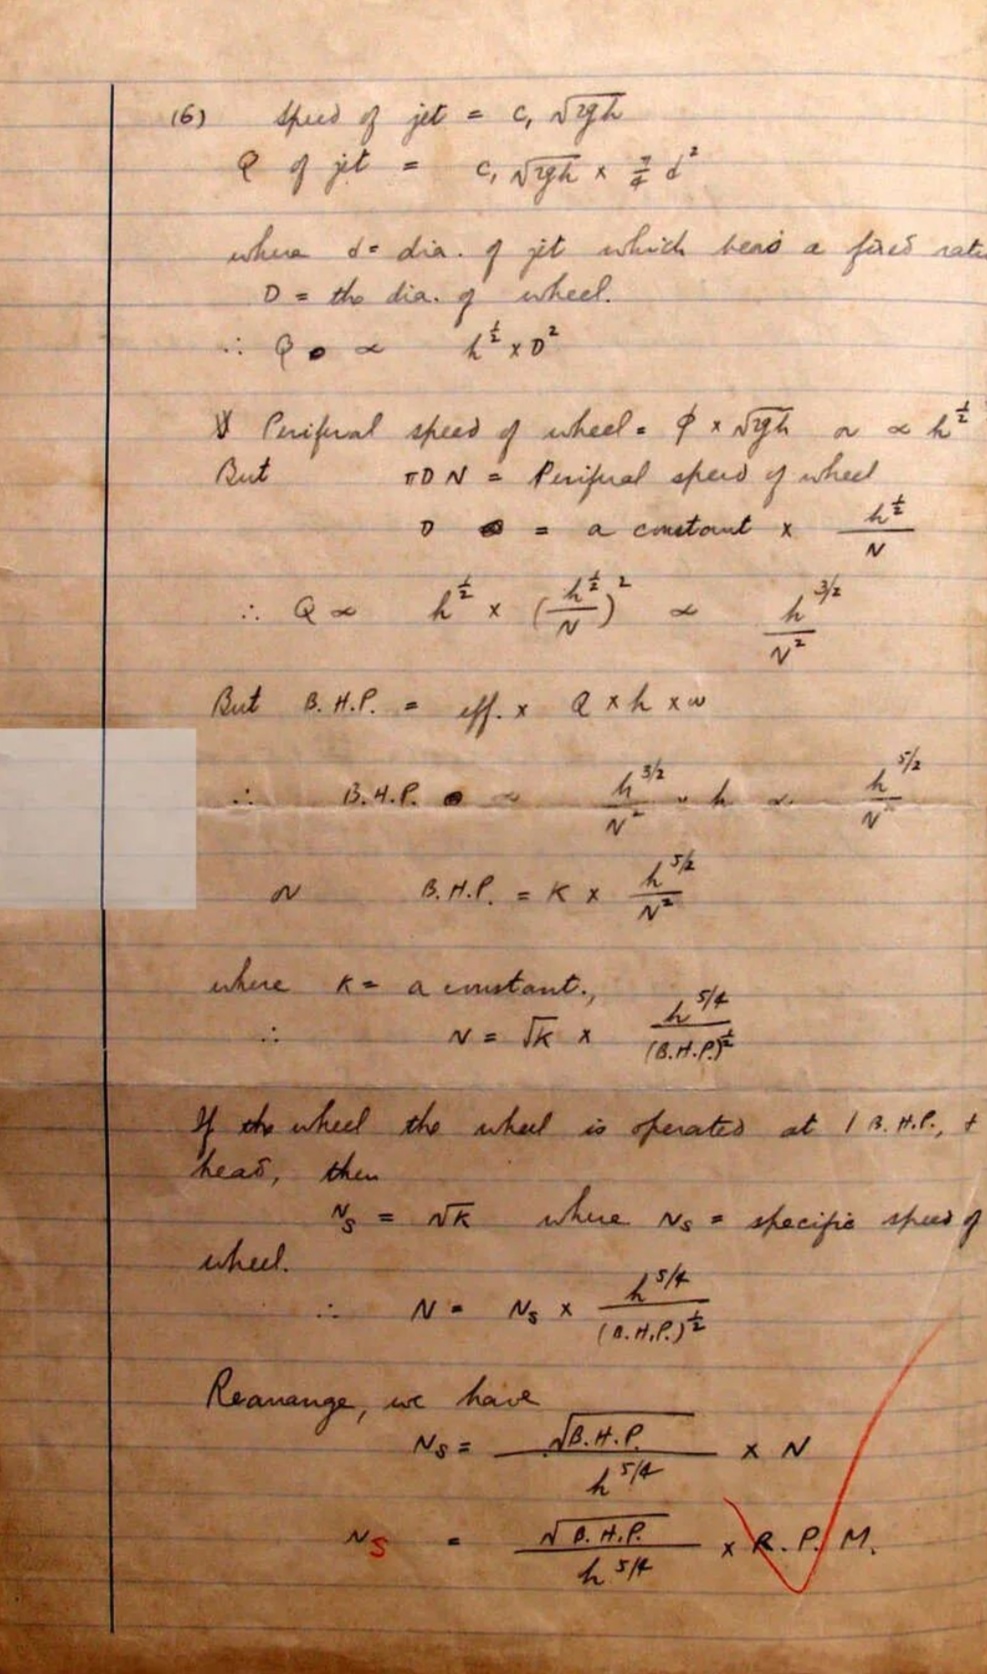 (6) Speed of jet = C₁ √2gh
Q of jet = C₁ √2gh × π/4 d²
where d = dia. of jet which bears a fixed
D = the dia. of wheel.
∴ Q ∝ h^½ × D²
Periferal speed of wheel = φ × √2gh or ∝ h^½
But πDN = Periferal speed of wheel
D = a constant × h^½/N
∴ Q ∝ h^½ × (h^½/N)² ∝ h^3/2/N²
But B.H.P. = eff. × Q × h × w
∴ B.H.P. ∝ h^3/2/N² × h ∝ h^5/2/N²
or B.H.P. = K × h^5/2/N²
where K = a constant.,
∴ N = √K × h^5/4/(B.H.P.)^½
If the wheel the wheel is operated at 1 B.H.P.,
head, then
N_s = √K where N_s = specific speed of
wheel.
∴ N = N_s × h^5/4/(B.H.P.)^½
Rearange, we have
N_s = √B.H.P./h^5/4 × N
N_s = √B.H.P./h^5/4 × R.P.M.